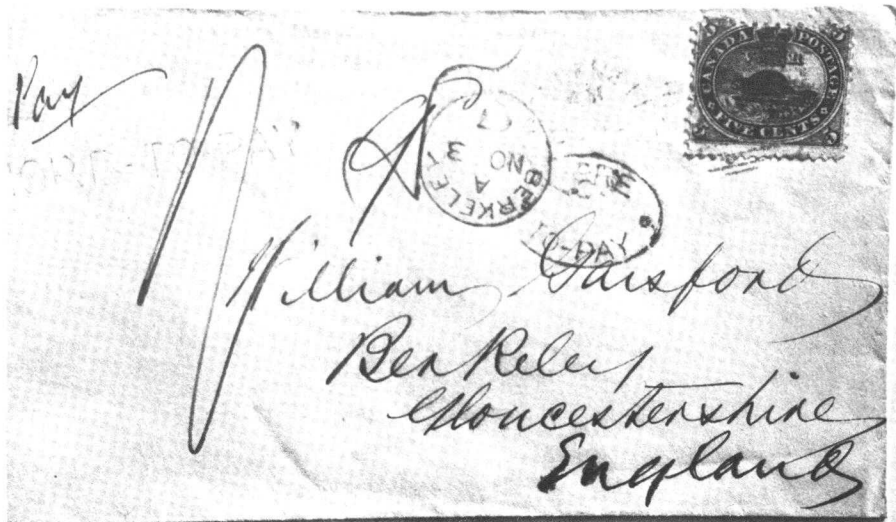 Pay
CANADA POSTAGE
FIVE CENTS
5
BERKELEY
A
NO 3
TO-PAY
William
Berkeley
Gloucestershire
England